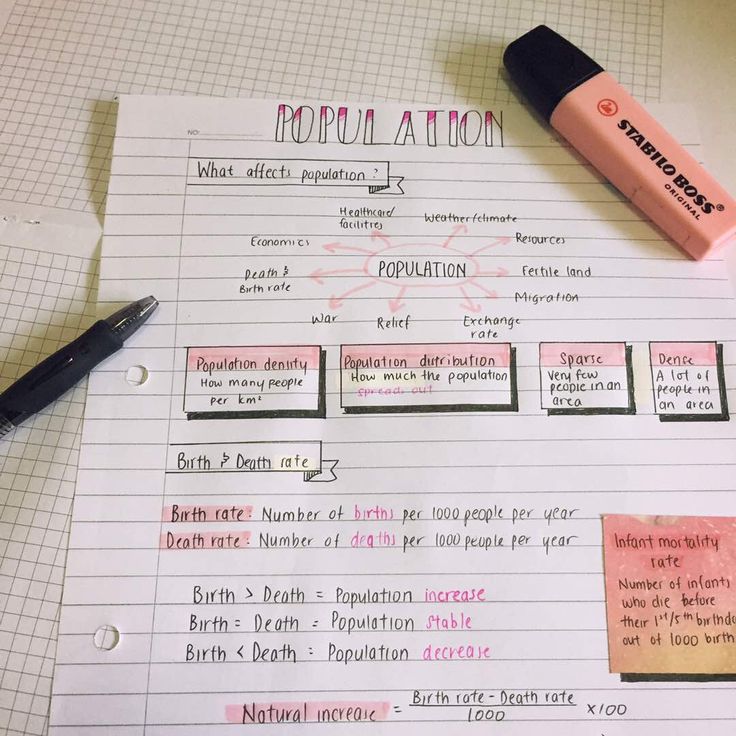 NO:
POPULATION
What affects population?
Healthcare/
facilities
Weather/climate
Economics
Resources
Death &
Birth rate
POPULATION
Fertile land
Migration
War
Relief
Exchange
rate
Population density
How many people
per km²
Population distribution
How much the population
spreads out
Sparse
Very few
people in an
area
Dense
A lot of
people in
an area
Birth & Death rate
Birth rate: Number of births per 1000 people per year
Death rate: Number of deaths per 1000 people per year
Infant mortality
rate
Number of infants
who die before
their 1st/5th birthd
out of 1000 birth
Birth > Death = Population increase
Birth = Death = Population stable
Birth < Death = Population decrease
Natural increase = Birth rate - Death rate
1000
x100
STABILO BOSS
ORIGINAL